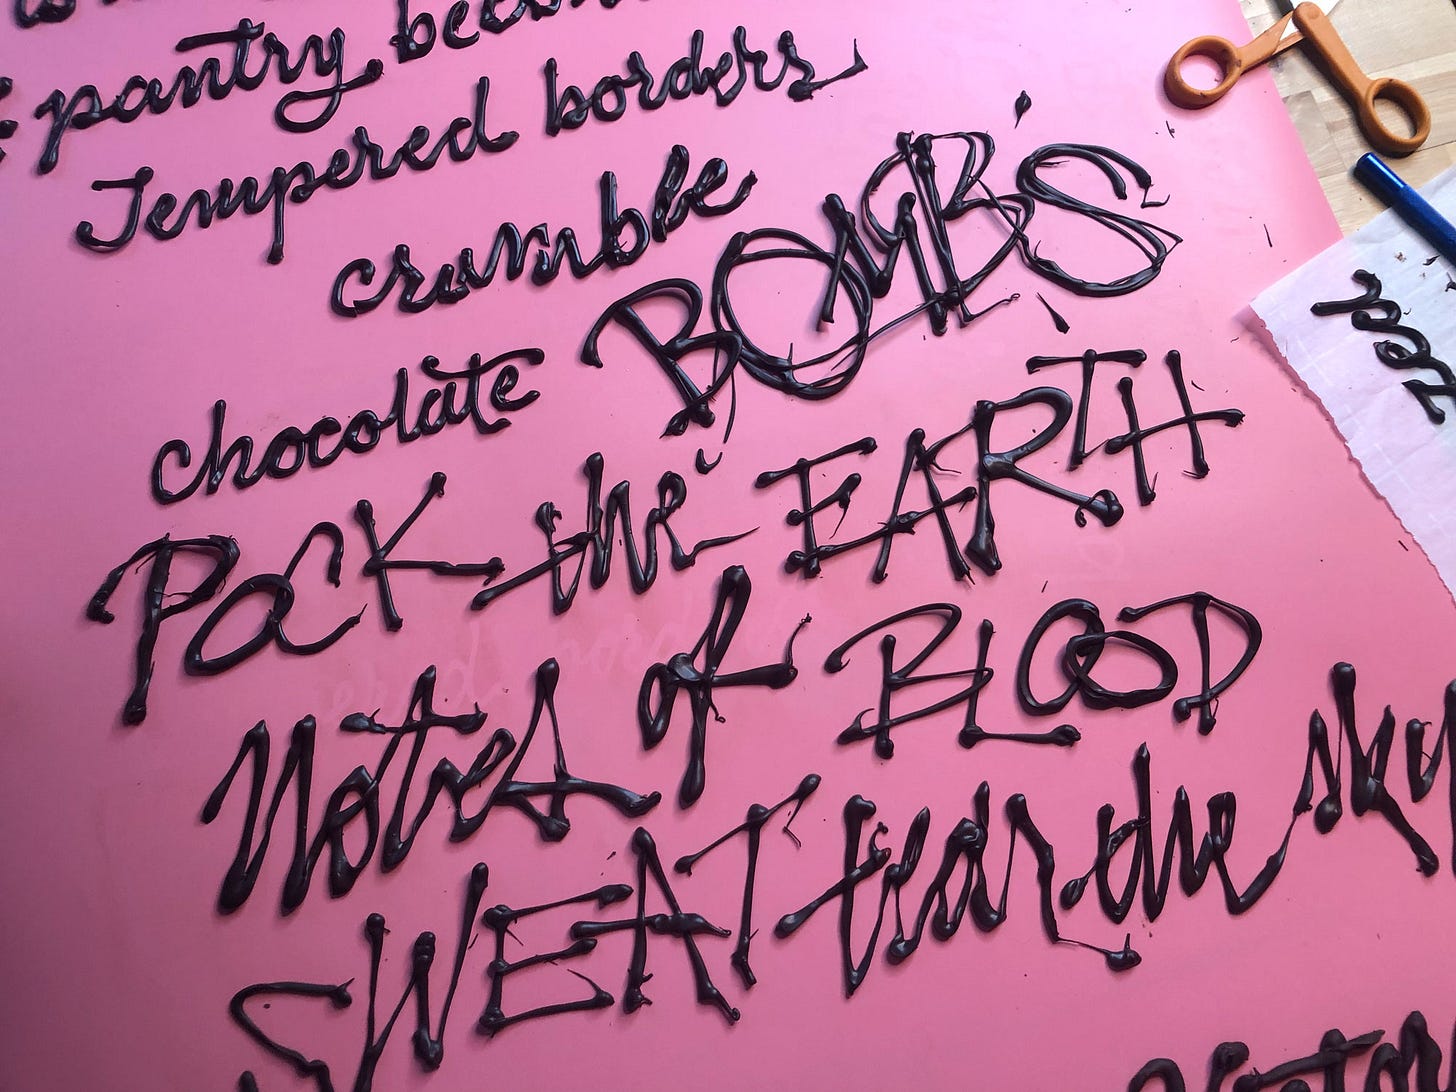 pantry
Tempered borders
crumble
chocolate BOMBS
POCK the EARTH
Notes of BLOOD
SWEAT tear the sky